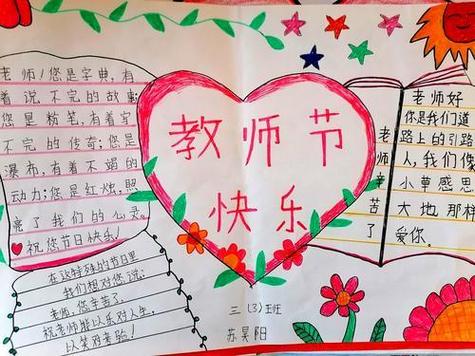 老师！您是字典，有
着说不完的故事
您是粉笔，有着写
不完的传奇；您是
瀑布，有着不竭的
动力；您是红烛，照
亮了我们的心灵。
祝您节日快乐！
在这特殊的节日里
我们想对您说：
老师，您辛苦了。
祝老师能以乐对人生，
以笑对喜
教师节
快乐
三（3）班
苏昊阳
老师好
你是我们道
路上的引路
人，我们像
小草感思
大地那样
爱你。
老师辛苦了